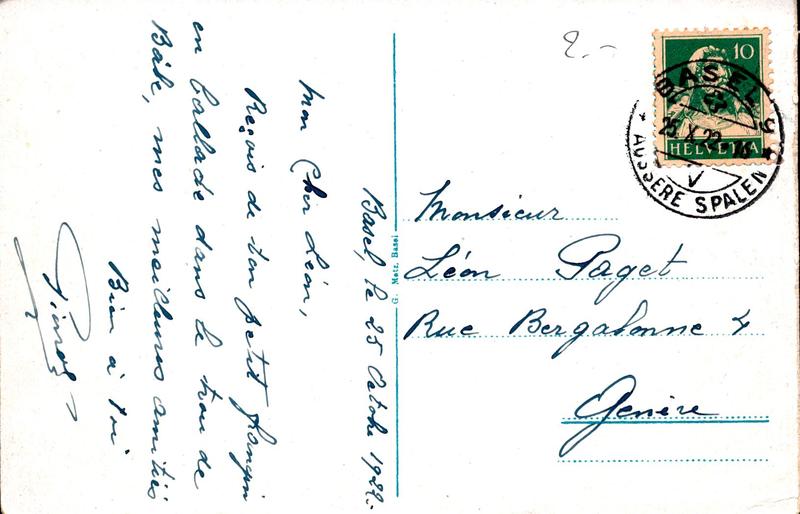 Basel, le 25 Octobre 1922.
Mon Cher Léon,
Reçois de ton petit frangin
en ballade dans le trou de
Bâle, mes meilleures amitiés
Bien à toi
G. Metz, Basel
2.-
10
HELVETIA
BASEL 9
25.X.22.
AUSSERE SPALEN
Monsieur
Léon Paget
Rue Bergalonne 4
Genève